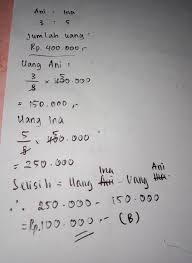 Ani : Ina
3 : 5
Jumlah uang :
Rp. 400.000,-
Uang Ani :
3/8 x 400.000
= 150.000
Uang Ina
5/8 x 400.000
= 250.000
Selisih = Uang Ina - Uang Ani
∴ 250.000 - 150.000
= Rp. 100.000,- (B)